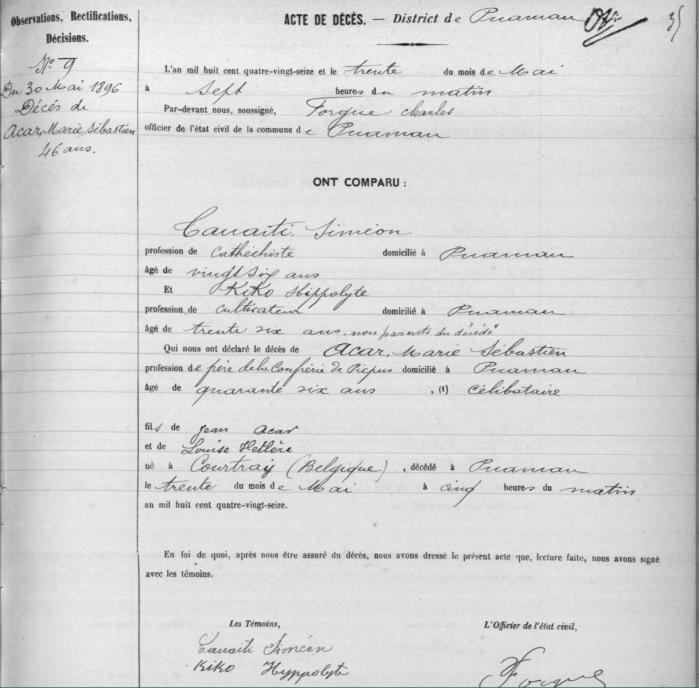 Observations, Rectifications,
Décisions.
No 9
Du 30 Mai 1896
Décès de
Acar, Marie Sébastien
46 ans.
35
ACTE DE DÉCÈS. — District de Puamau
L'an mil huit cent quatre-vingt-seize et le trente du mois de Mai
à sept heures du matin
Par-devant nous, soussigné, Forgue Charles
officier de l'état civil de la commune de Puamau
ONT COMPARU :
Tauaiti Siméon
profession de Cathéchiste domicilié à Puamau
âgé de vingt six ans
Et Kiko Hippolyte
profession de cultivateur domicilié à Puamau
âgé de trente six ans, non parents du décédé
Qui nous ont déclaré le décès de Acar, Marie Sébastien
profession de frère de la Confrérie de Picpus domicilié à Puamau
âgé de quarante six ans , (1) célibataire
fils de Jean Acar
et de Louise
né à Courtray (Belgique) , décédé à Puamau
le trente du mois de Mai à cinq heures du matin
an mil huit cent quatre-vingt-seize.
En foi de quoi, après nous être assuré du décès, nous avons dressé le présent acte que, lecture faite, nous avons signé
avec les témoins.
Les Témoins,
L'Officier de l'état civil,
Tauaiti Siméon
Kiko Hyppolyte
Forgue